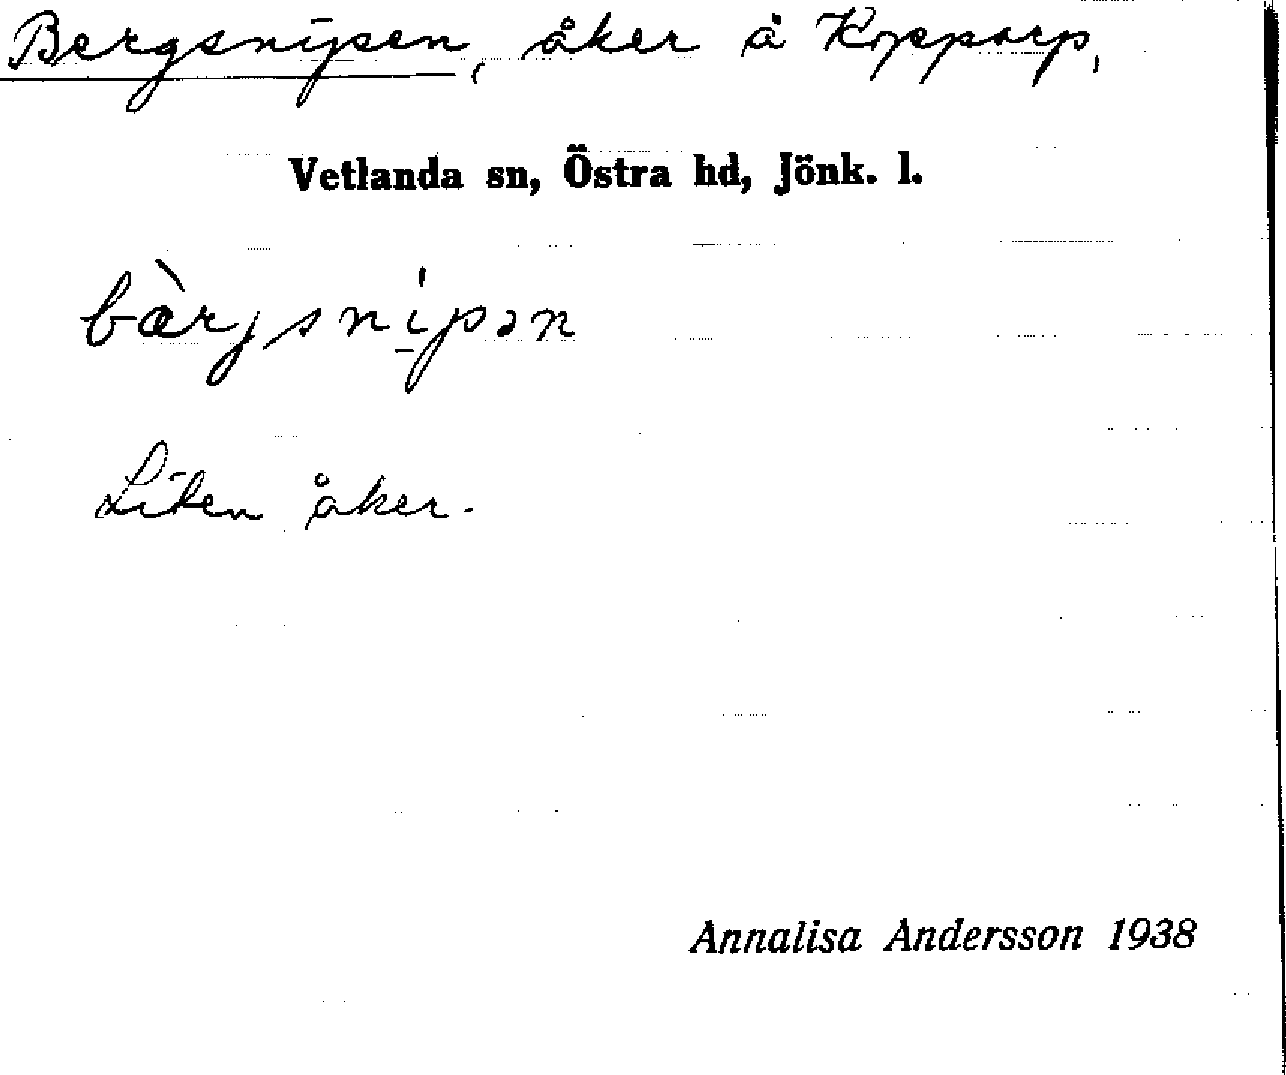 Bergsnipen, åker å Kopparp,
Vetlanda sn, Östra hd, Jönk. l.
bærjsnipən
Liten åker.
Annalisa Andersson 1938